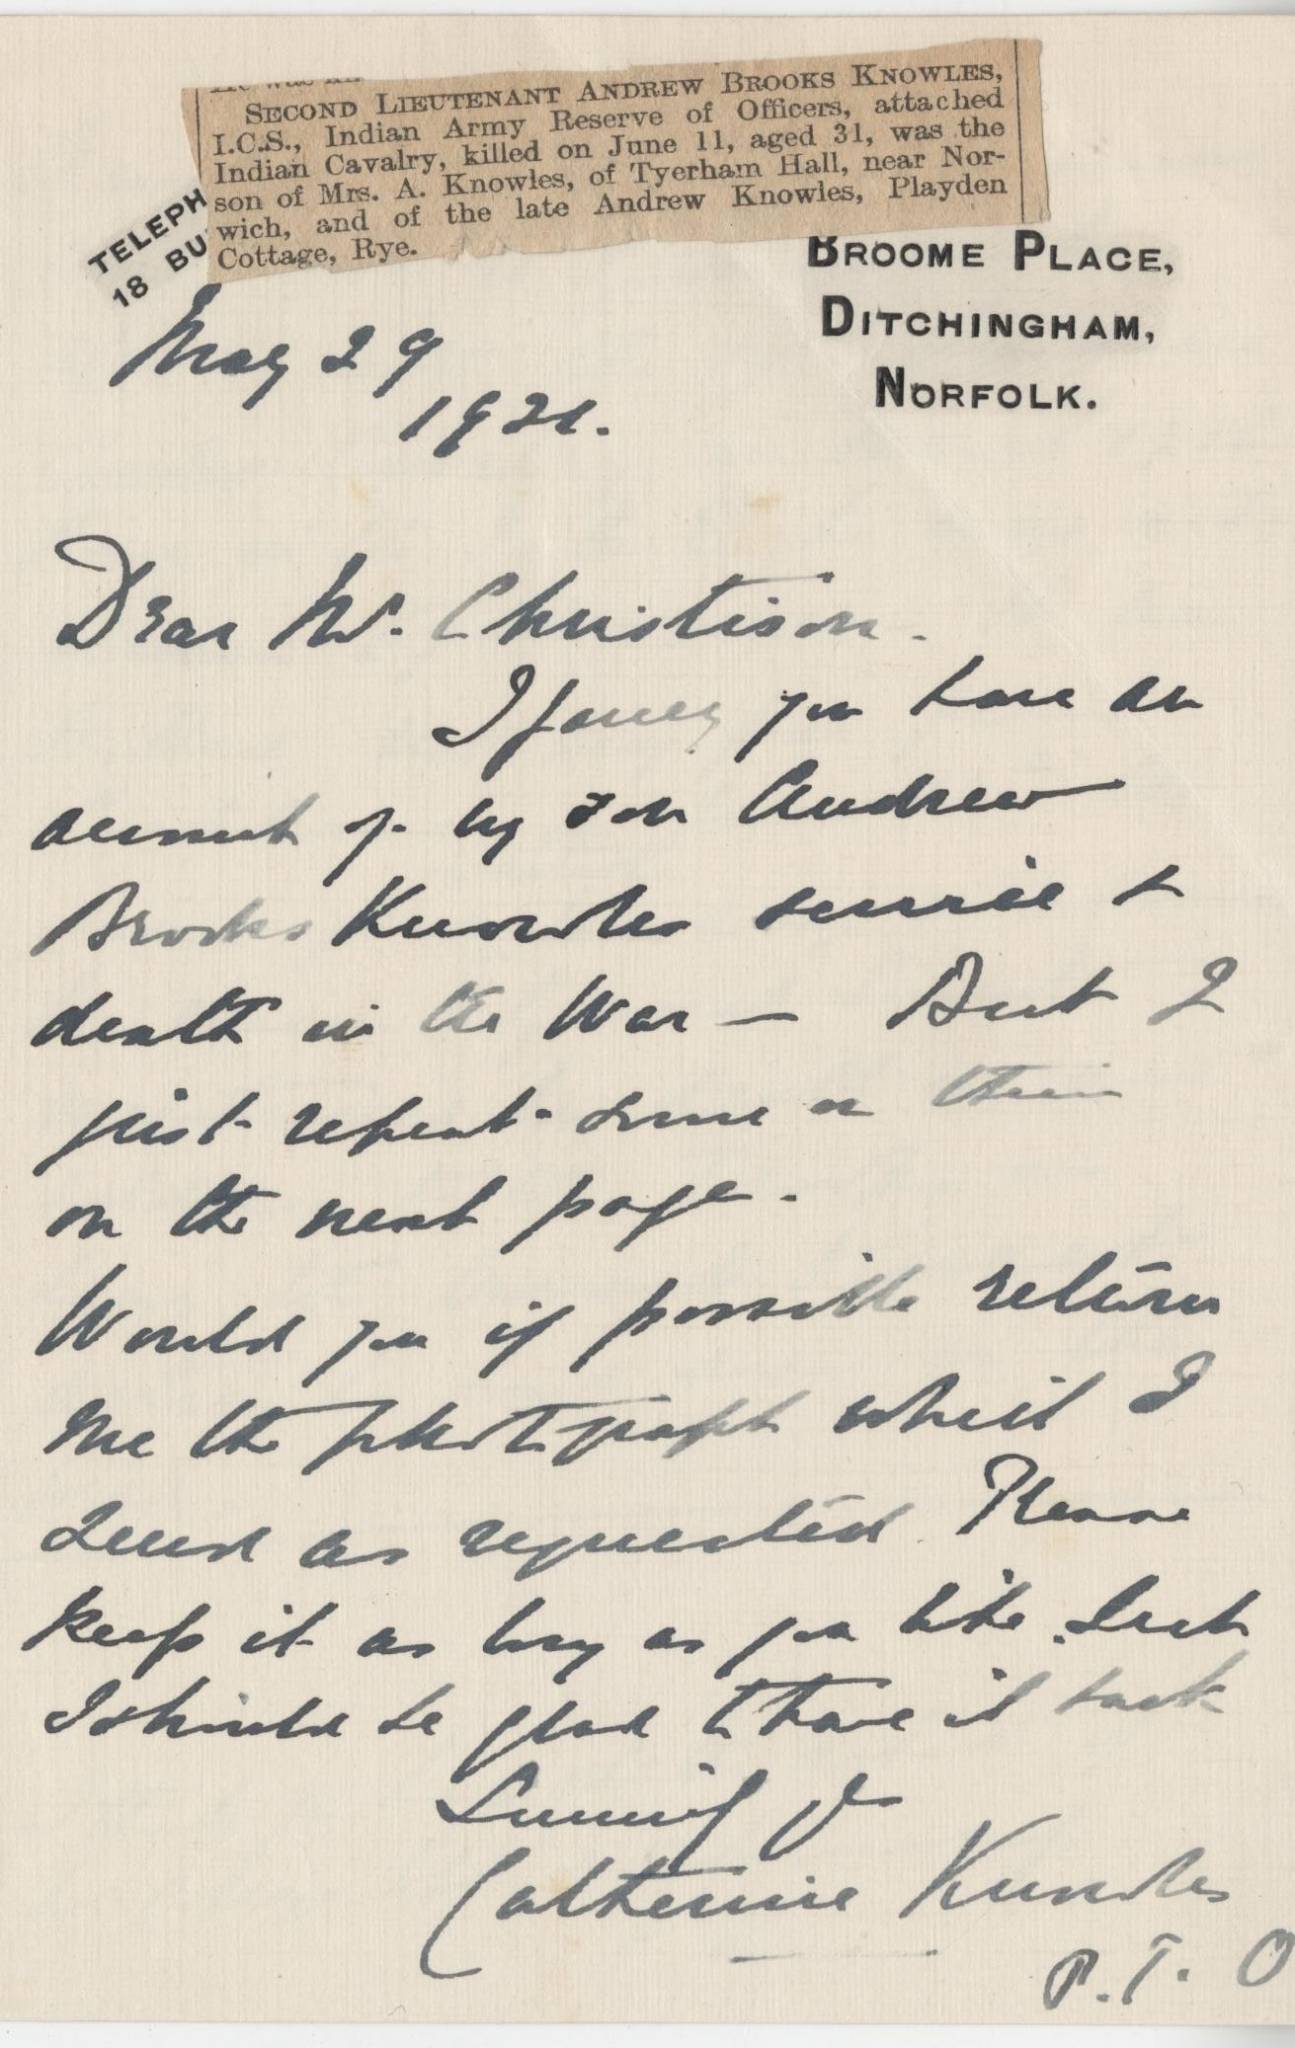 SECOND LIEUTENANT ANDREW BROOKS KNOWLES,
I.C.S., Indian Army Reserve of Officers, attached
Indian Cavalry, killed on June 11, aged 31, was the
son of Mrs. A. Knowles, of Tyerham Hall, near Nor-
wich, and of the late Andrew Knowles, Playden
Cottage, Rye.
TELEPH
18 BU
BROOME PLACE,
DITCHINGHAM,
NORFOLK.
May 29
1921.
Dear Mr. Christison.
I fancy you have an
account of my son Andrew
Brooks Knowles service &
death in the War — But I
just repeat some on
on the next page.
Would you if possible return
me the photograph which I
send as requested. Please
keep it as long as you like. But
I should be glad to have it back
Catherine Knowles
P.T.O